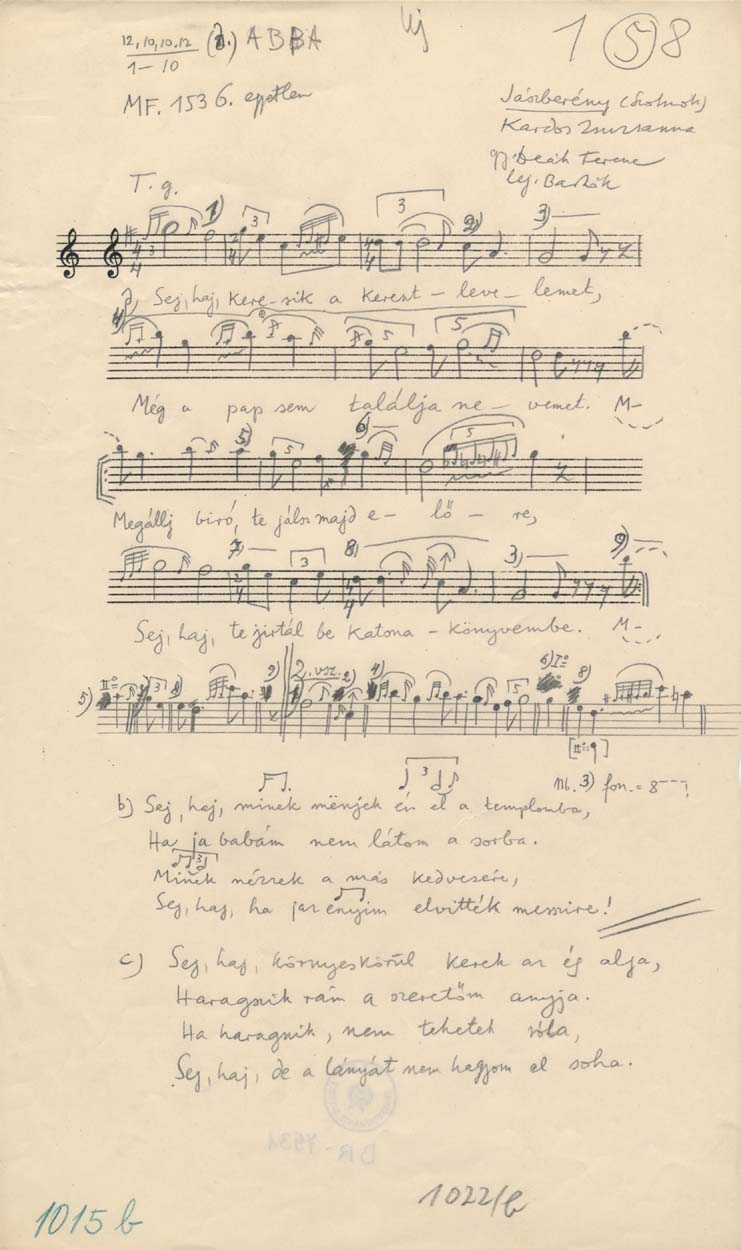 12, 10, 10, 12 (2.) A B B A
1–10
új
1 5 8
MF. 1536. egyetlen
Jászberény (Szolnok)
Kardos Zsuzsanna
gy. Deák Ferenc
lej. Bartók
T. g.
1) 3 3 2) 3)
a, Sej, haj, kere-sik a kereszt-leve-lemet,
4) 5 5
Még a pap sem találja ne- vemet. M-
5) 5 6) 5
Megállj biró, te jálsz majd e- lő- re,
7) 3 8) 3) 9)
Sej, haj, te jirtál be katona-könyvembe. M-
5) II° 3 9) 2. vsz. 2) 4) 5 6) I° 8)
3
nb. 3) fon. = 8
b) Sej, haj, minek mënjek én el a templomba,
Ha ja babám nem látom a sorba.
3
Minek nézzek a más kedvesére,
Sej, haj, ha jaz ënyim elvitték messzire!
c) Sej, haj, környeskörül kerek az ég alja,
Haragszik rám a szeretőm anyja.
Ha haragszik, nem tehetek róla,
Sej, haj, de a lányát nem hagyom el soha.
BR-7934
1022/b
1015 b